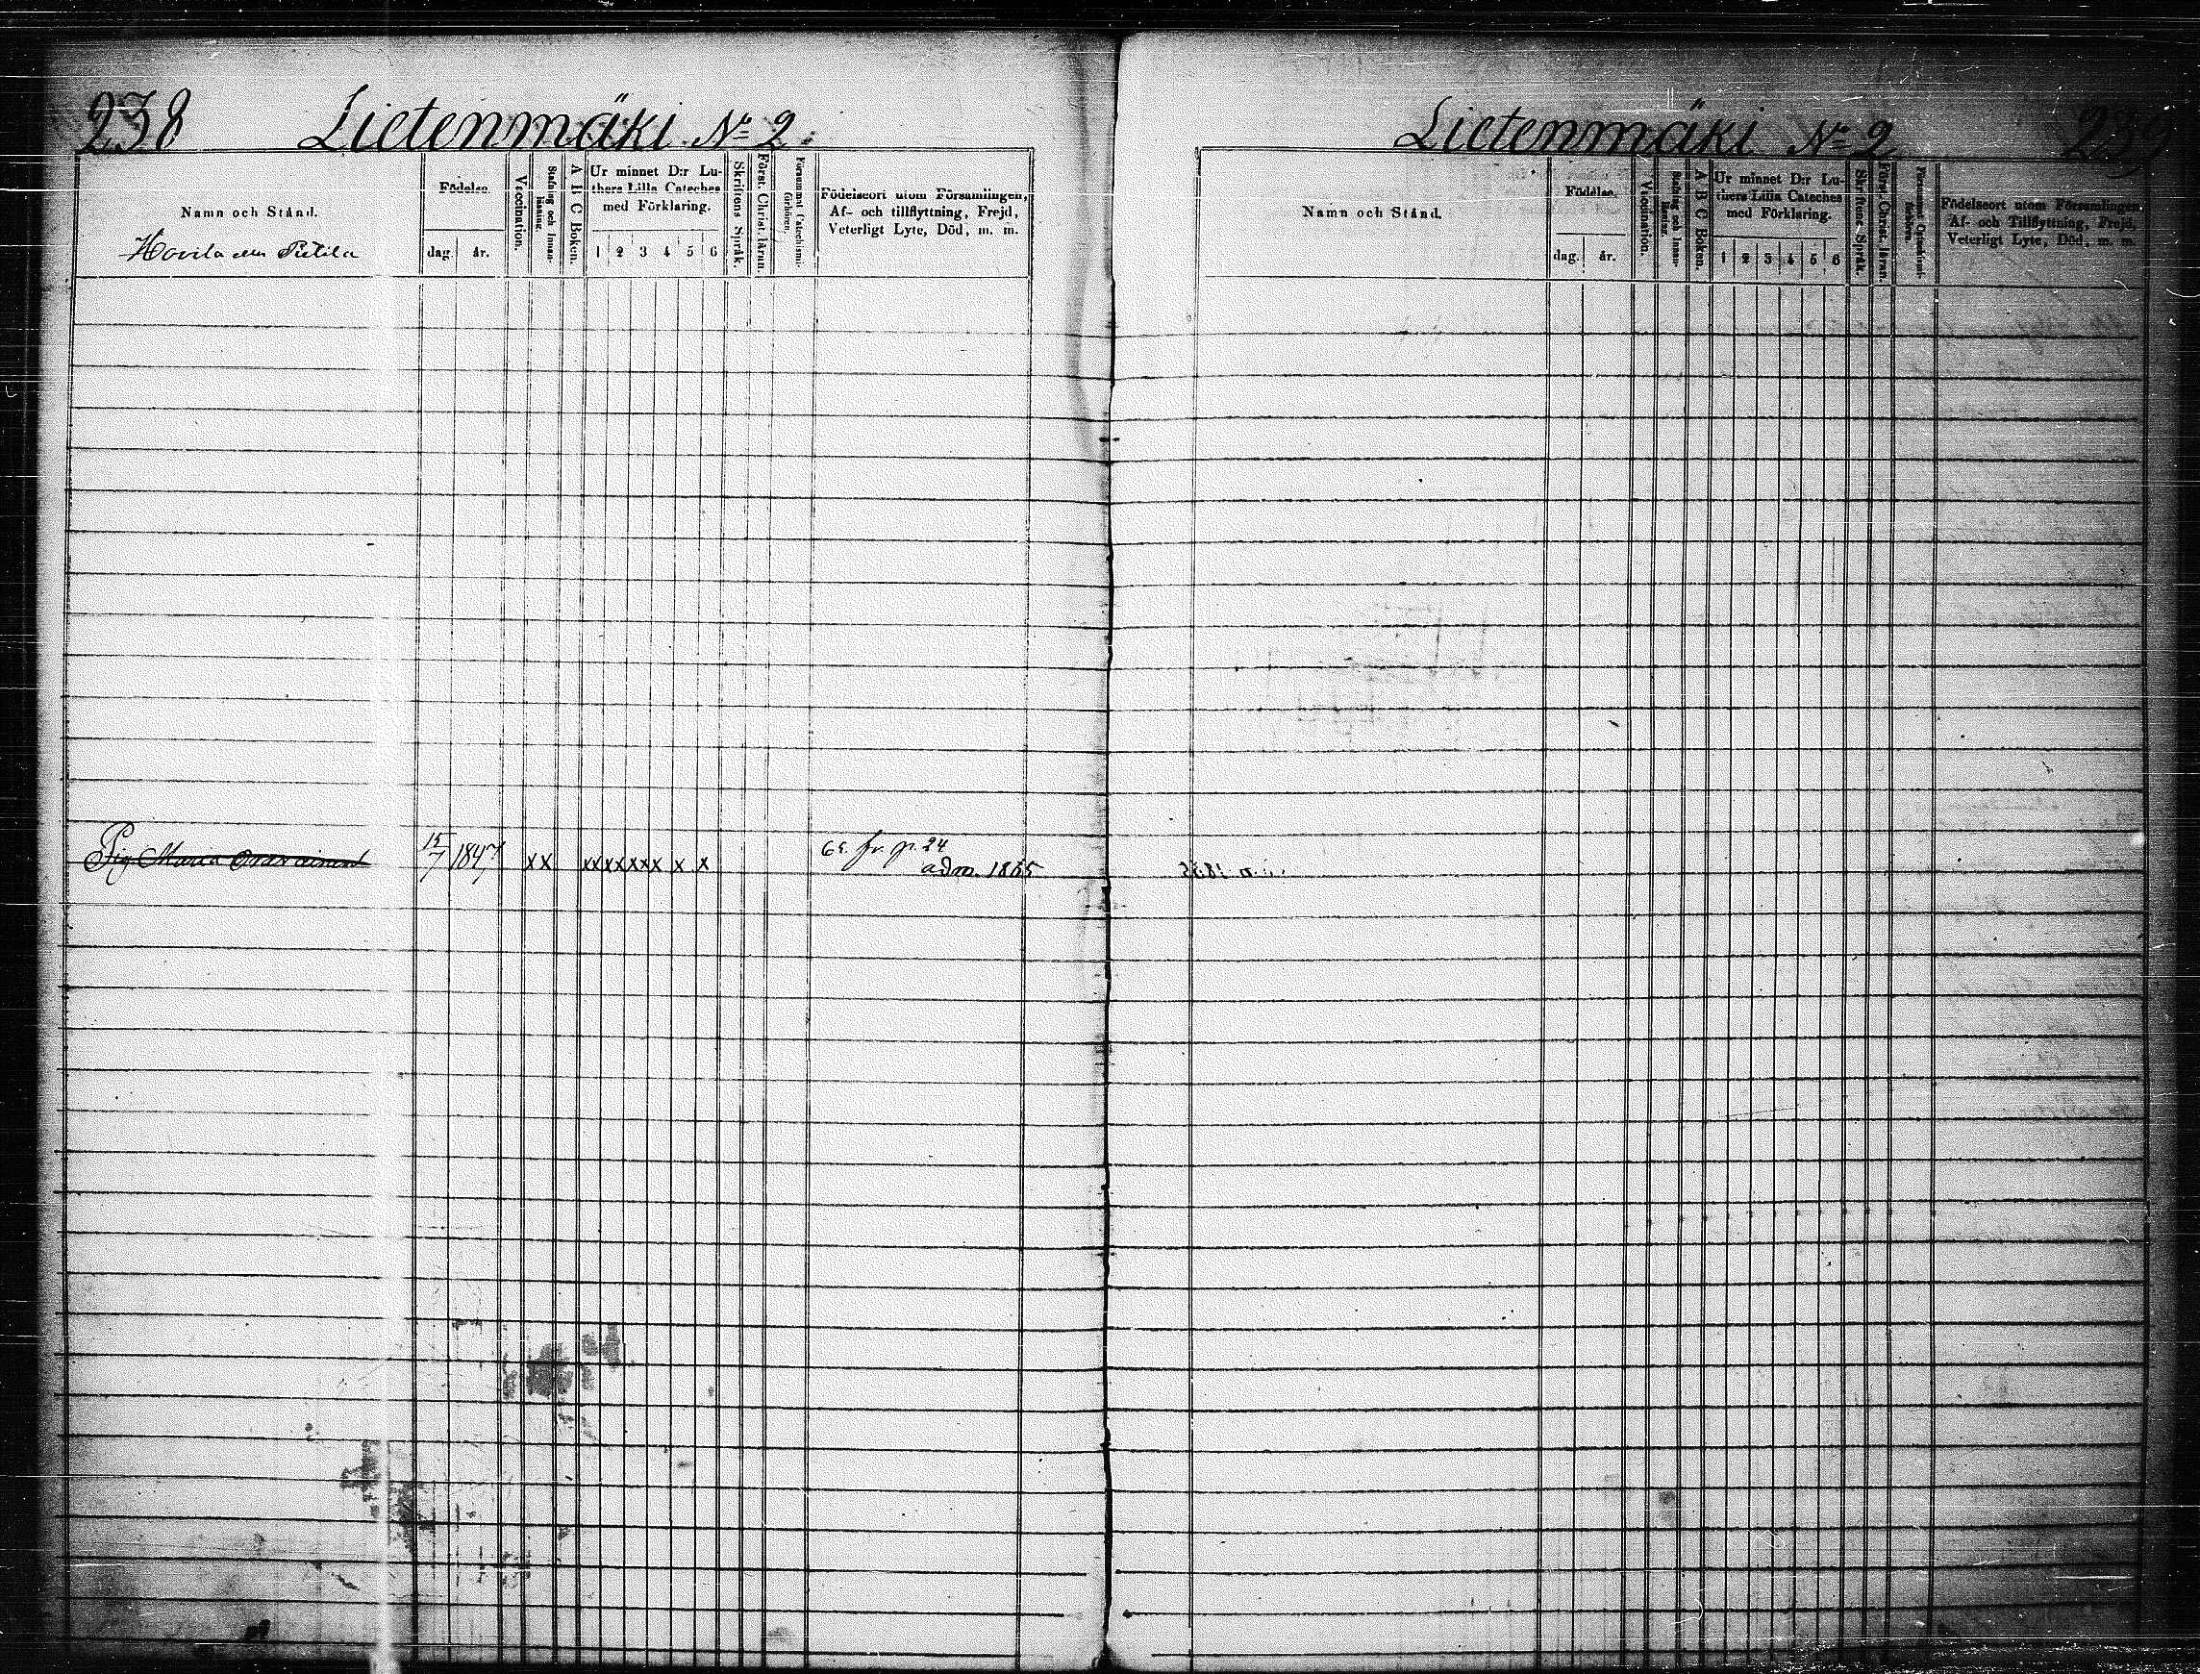 238
Lietenmäki No 2.
Namn och Stånd.
Hovila eller Pietilä
Födelse.
dag.
år.
Vaccination.
Stafning och Innanläsning.
A B C Boken.
Ur minnet D:r Lu-
thers Lilla Cateches
med Förklaring.
1 2 3 4 5 6
Skriftens Språk.
Först. Christ. läran.
Försummat Catechismi-
förhören.
Födelseort utom Församlingen,
Af- och tillflyttning, Frejd,
Veterligt Lyte, Död, m. m.
Pig. Maria
15/7 1847 x x x x x x x x x x
65. fr. p. 24
adm. 1865
Lietenmäki No 2
239
Namn och Stånd.
Födelse.
dag.
år.
Vaccination.
Stafning och Innan-
läsning.
A B C Boken.
Ur minnet D:r Lu-
thers Lilla Cateches
med Förklaring.
1 2 3 4 5 6
Skriftens Språk.
Först. Christ. läran.
Försummat Catechismi-
förhören.
Födelseort utom Församlingen
Af- och Tillflyttning, Frejd,
Veterligt Lyte, Död, m. m.